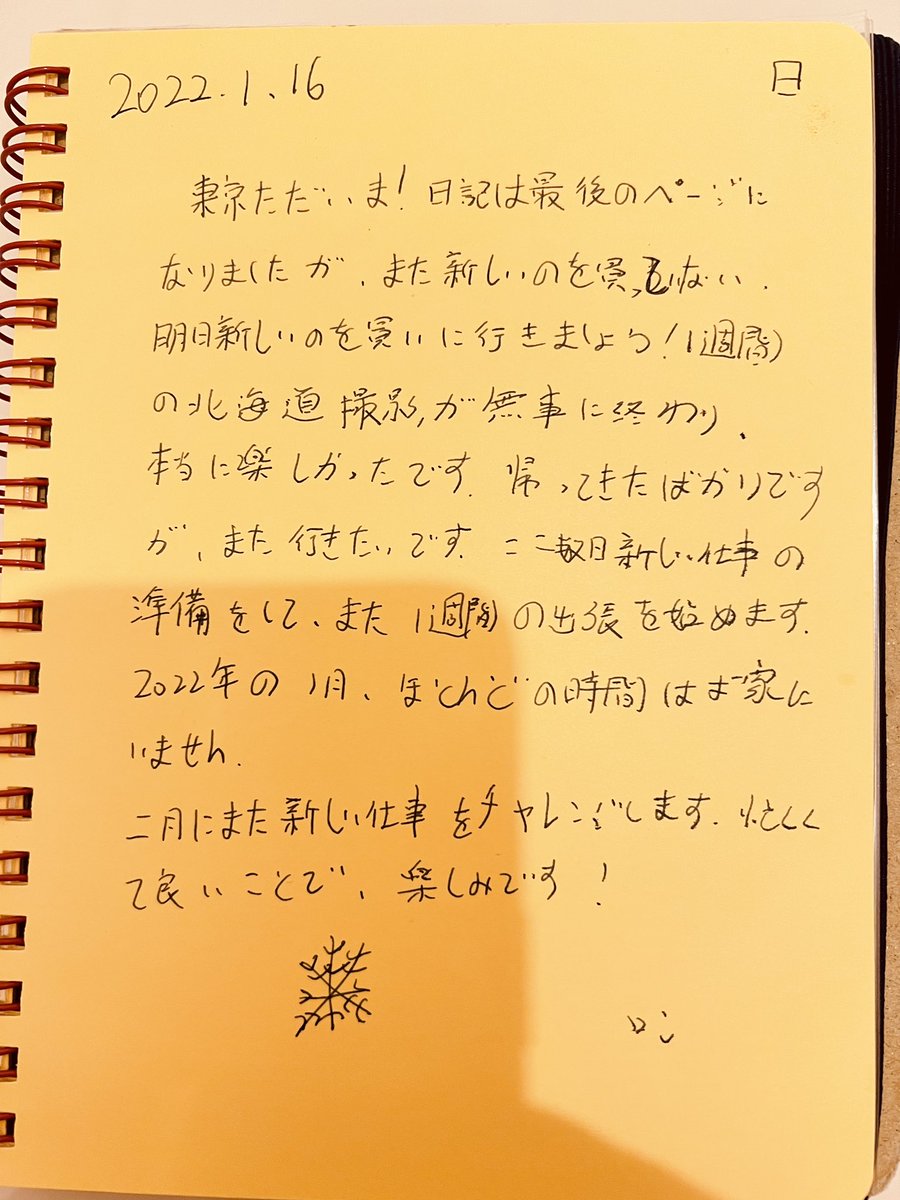 2022.1.16 日
東京ただいま！日記は最後のページに
なりましたが、また新しいのを買っていない.
明日新しいのを買いに行きましょう！1週間
の北海道撮影が無事に終わり、
本当に楽しかったです. 帰ってきたばかりです
が、また行きたいです. ここ数日新しい仕事の
準備をして、また1週間の出張を始めます.
2022年の1月、ほとんどの時間はお家に
いません.
二月にまた新しい仕事をチャレンジします. 忙しく
て良いことで、楽しみです！